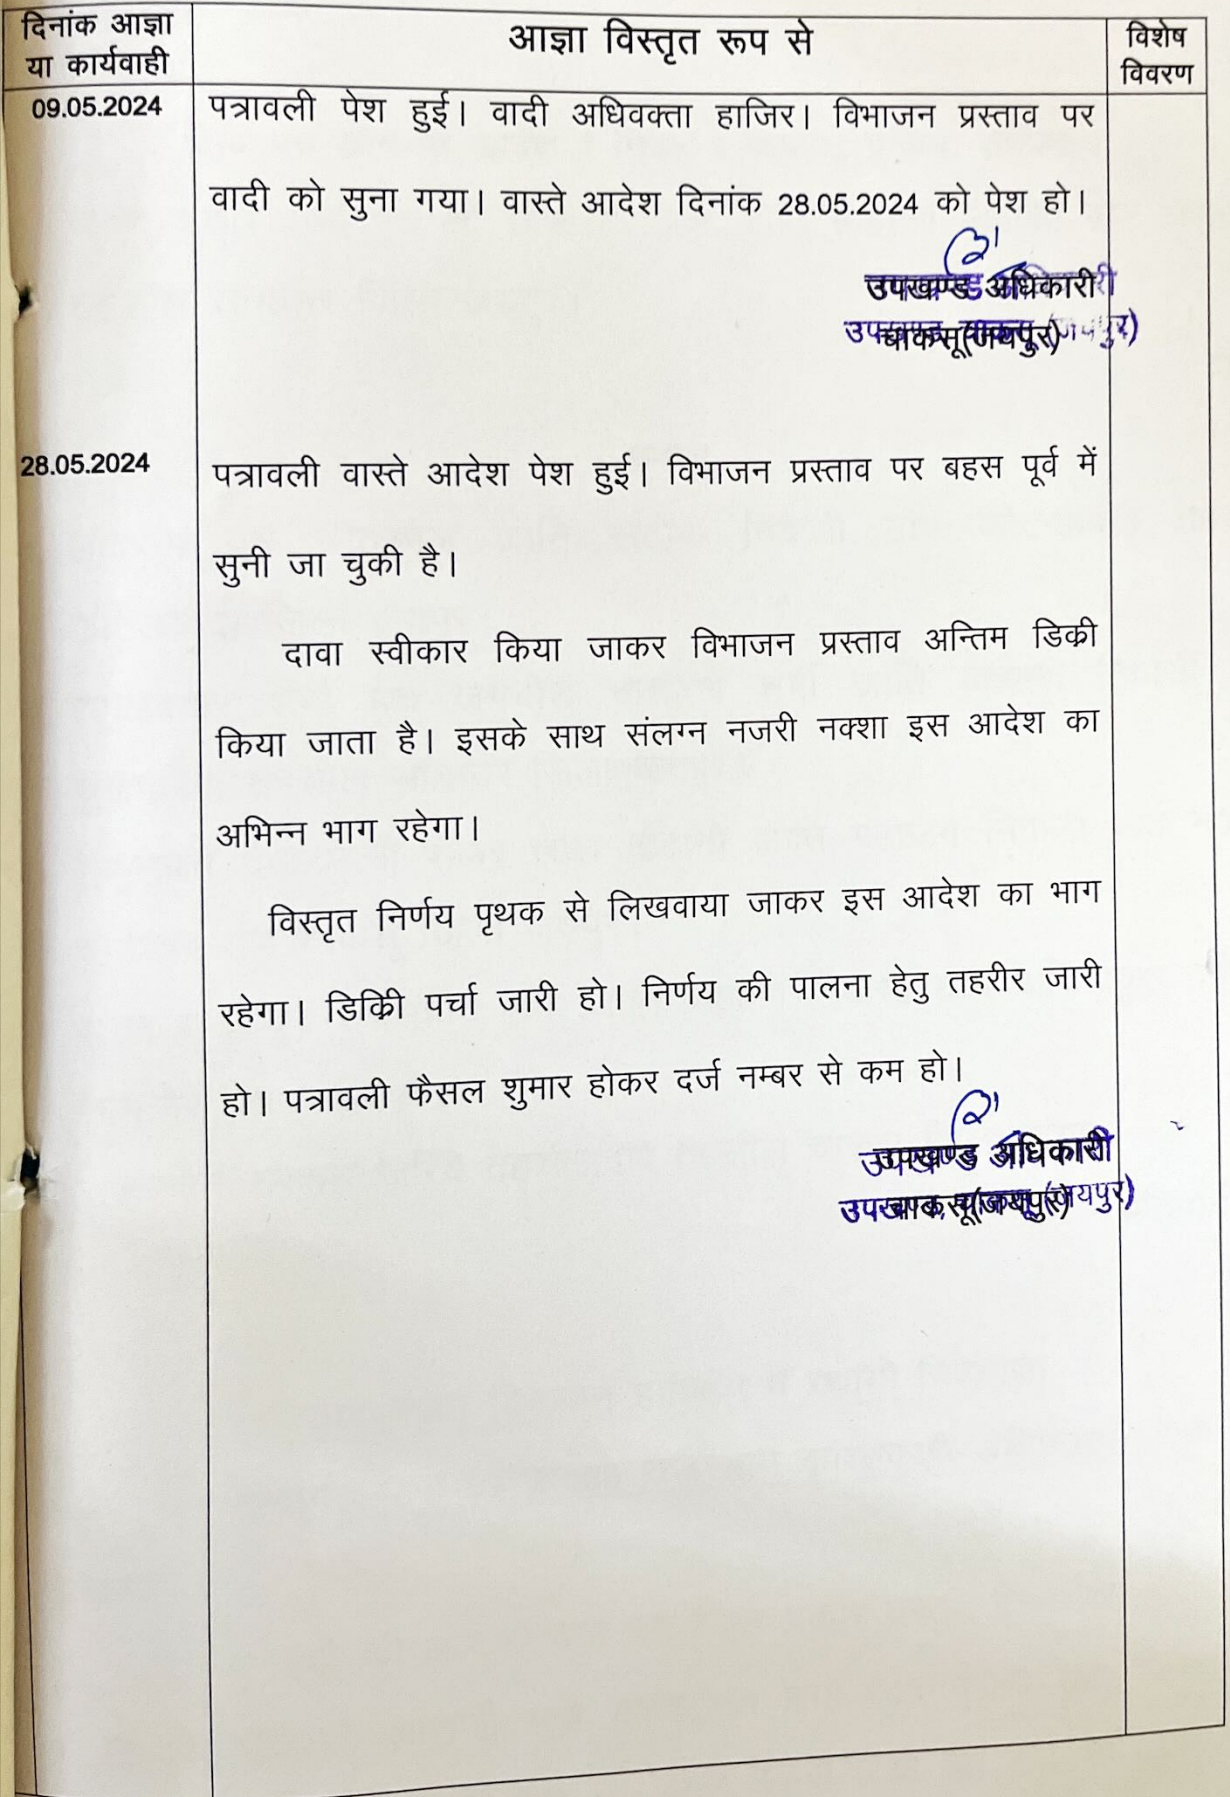 दिनांक आज्ञा
या कार्यवाही
आज्ञा विस्तृत रूप से
विशेष
विवरण
09.05.2024
पत्रावली पेश हुई। वादी अधिवक्ता हाजिर। विभाजन प्रस्ताव पर
वादी को सुना गया। वास्ते आदेश दिनांक 28.05.2024 को पेश हो।
उपखण्ड अधिकारी
चाकसू(जयपुर)
28.05.2024
पत्रावली वास्ते आदेश पेश हुई। विभाजन प्रस्ताव पर बहस पूर्व में
सुनी जा चुकी है।
दावा स्वीकार किया जाकर विभाजन प्रस्ताव अन्तिम डिक्री
किया जाता है। इसके साथ संलग्न नजरी नक्शा इस आदेश का
अभिन्न भाग रहेगा।
विस्तृत निर्णय पृथक से लिखवाया जाकर इस आदेश का भाग
रहेगा। डिक्रिी पर्चा जारी हो। निर्णय की पालना हेतु तहरीर जारी
हो। पत्रावली फैसल शुमार होकर दर्ज नम्बर से कम हो।
उपखण्ड अधिकारी
चाकसू(जयपुर)